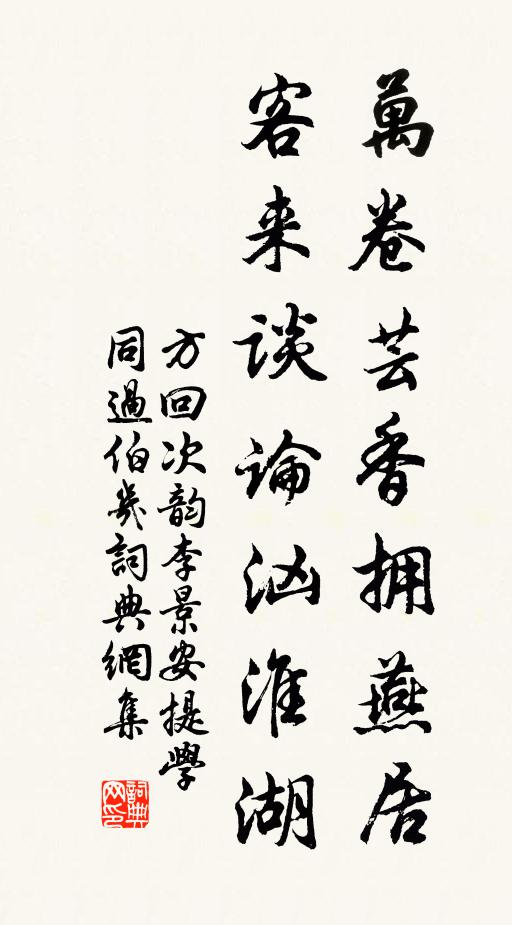 萬卷芸香拥燕居
客来談論汹淮湖
方回次韵李景安提學
同過伯幾詞典網集
詞典网印